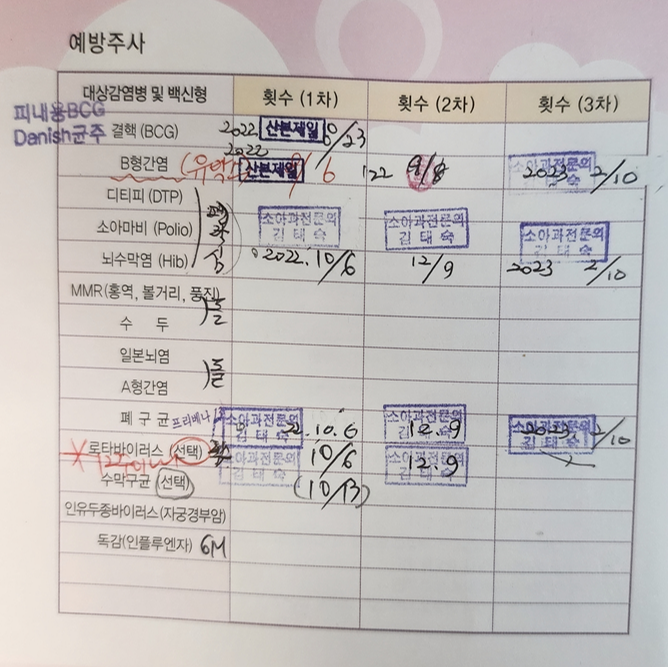 예방주사
대상감염병 및 백신형 횟수 (1차) 횟수 (2차) 횟수 (3차)
피내용BCG
Danish균주
결핵 (BCG) 2022 산본제일 /23
2022
B형간염 산본제일 9/6 '22 소아과전문의 2023 2/10
디티피 (DTP)
소아마비 (Polio) 소아과전문의 김태숙 소아과전문의 김태숙 소아과전문의 김태숙
뇌수막염 (Hib) 2022. 10/6 12/9 2023 2/10
MMR (홍역, 볼거리, 풍진)
수 두
일본뇌염
A형간염
폐구균 프리베나 소아과전문의 김태숙 22.10.6 소아과전문의 김태숙 12.9 소아과전문의 김태숙 2023 2/10
로타바이러스 (선택) 소아과전문의 김태숙 10/6 소아과전문의 김태숙 12.9
수막구균 (선택) (10/13)
인유두종바이러스 (자궁경부암)
독감(인플루엔자) 6M